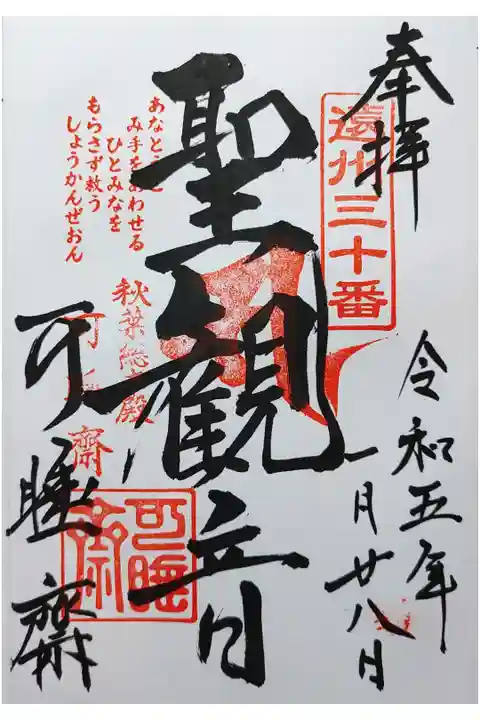 奉拝
遠州三十番
令和五年
一月廿八日
聖観音
あなとうと
み手をあわせる
ひとみなを
もらさず救う
しょうかんぜおん
秋葉総本殿
可睡齋
可睡齋
可睡齋